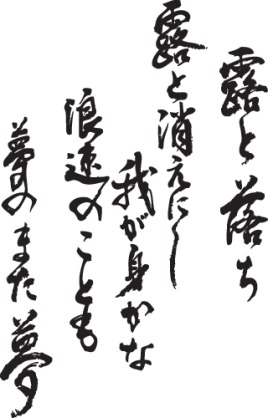 露と落ち
露と消えにし
我が身かな
浪速のことも
夢のまた夢